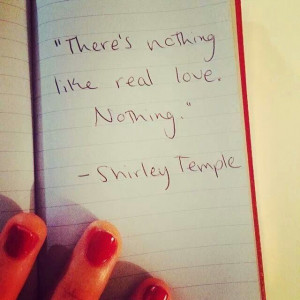 "There's nothing
like real love.
Nothing."
- Shirley Temple